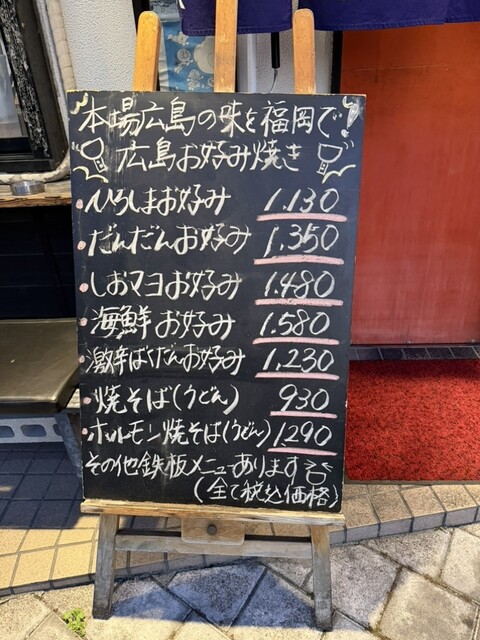 本場広島の味を福岡で!
広島お好み焼き
・ひろしまお好み 1.130
・だんだんお好み 1.350
・しおマヨお好み 1.480
・海鮮お好み 1.580
・激辛ばくだんお好み 1.230
・焼そば(うどん) 930
・ホルモン焼そば(うどん) 1290
その他鉄板メニューあります
(全て税込価格)